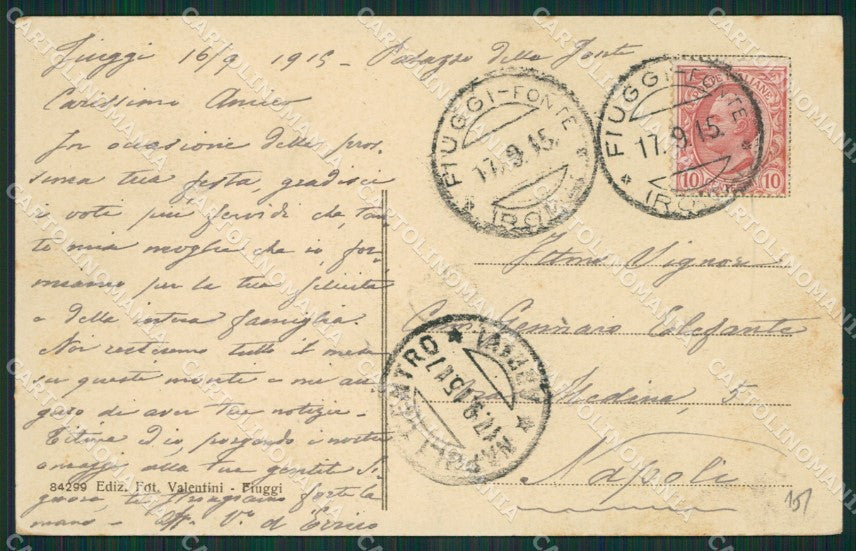 Fiuggi 16/9 1915 - Palazzo della Fonte
Carissimo Amico
In occasione della pros-
sima tua festa, gradisci
i voti più fervidi che, tan-
to mia moglie che io, for-
miamo per la tua felicità
e della intera famiglia.
Noi resteremo tutto il mese
su questo monte e me au-
guro di aver tue notizie -
Titina ed io, porgendo i nostri
omaggi alla tua gentile Si-
gnora, ti stringiamo forte la
mano - Aff.
84299 Ediz. Fot. Valentini - Fiuggi
FIUGGI-FONTE
17.9.15
(ROMA)
FIUGGI-FONTE
17.9.15
(ROMA)
POSTE ITALIANE
10 10
Ill.mo Signore
Gennaro Elefante
Medina, 5
Napoli
NAPOLI CENTRO
17.9.15 17
15/
CARTOLINOMANIA